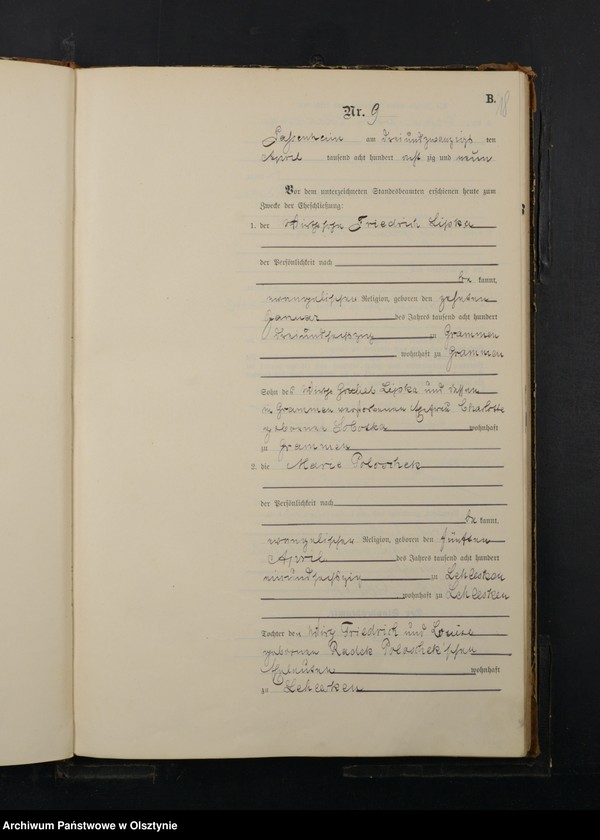 B.
18
Nr. 9
Passenheim am dreiundzwanzigs ten
April tausend acht hundert acht zig und neun
Vor dem unterzeichneten Standesbeamten erschienen heute zum
Zwecke der Eheschließung:
1. der Friedrich Lipka
der Persönlichkeit nach
be kannt,
evangelischer Religion, geboren den zehnten
Januar des Jahres tausend acht hundert
dreiundsechszig zu Grammen
, wohnhaft zu Grammen
Sohn des Wirths Lipka und dessen
in Grammen verstorbenen Ehefrau Charlotte
geborenen Sobotka wohnhaft
zu Grammen
2. die Marie Poloschek
der Persönlichkeit nach
be kannt,
evangelischer Religion, geboren den fünften
April des Jahres tausend acht hundert
vierundsechszig zu Lehlesken
, wohnhaft zu Lehlesken
Tochter der Friedrich und Louise
geborene Radek Poloschek'schen
Eheleuten wohnhaft
zu Lehlesken
Archiwum Państwowe w Olsztynie